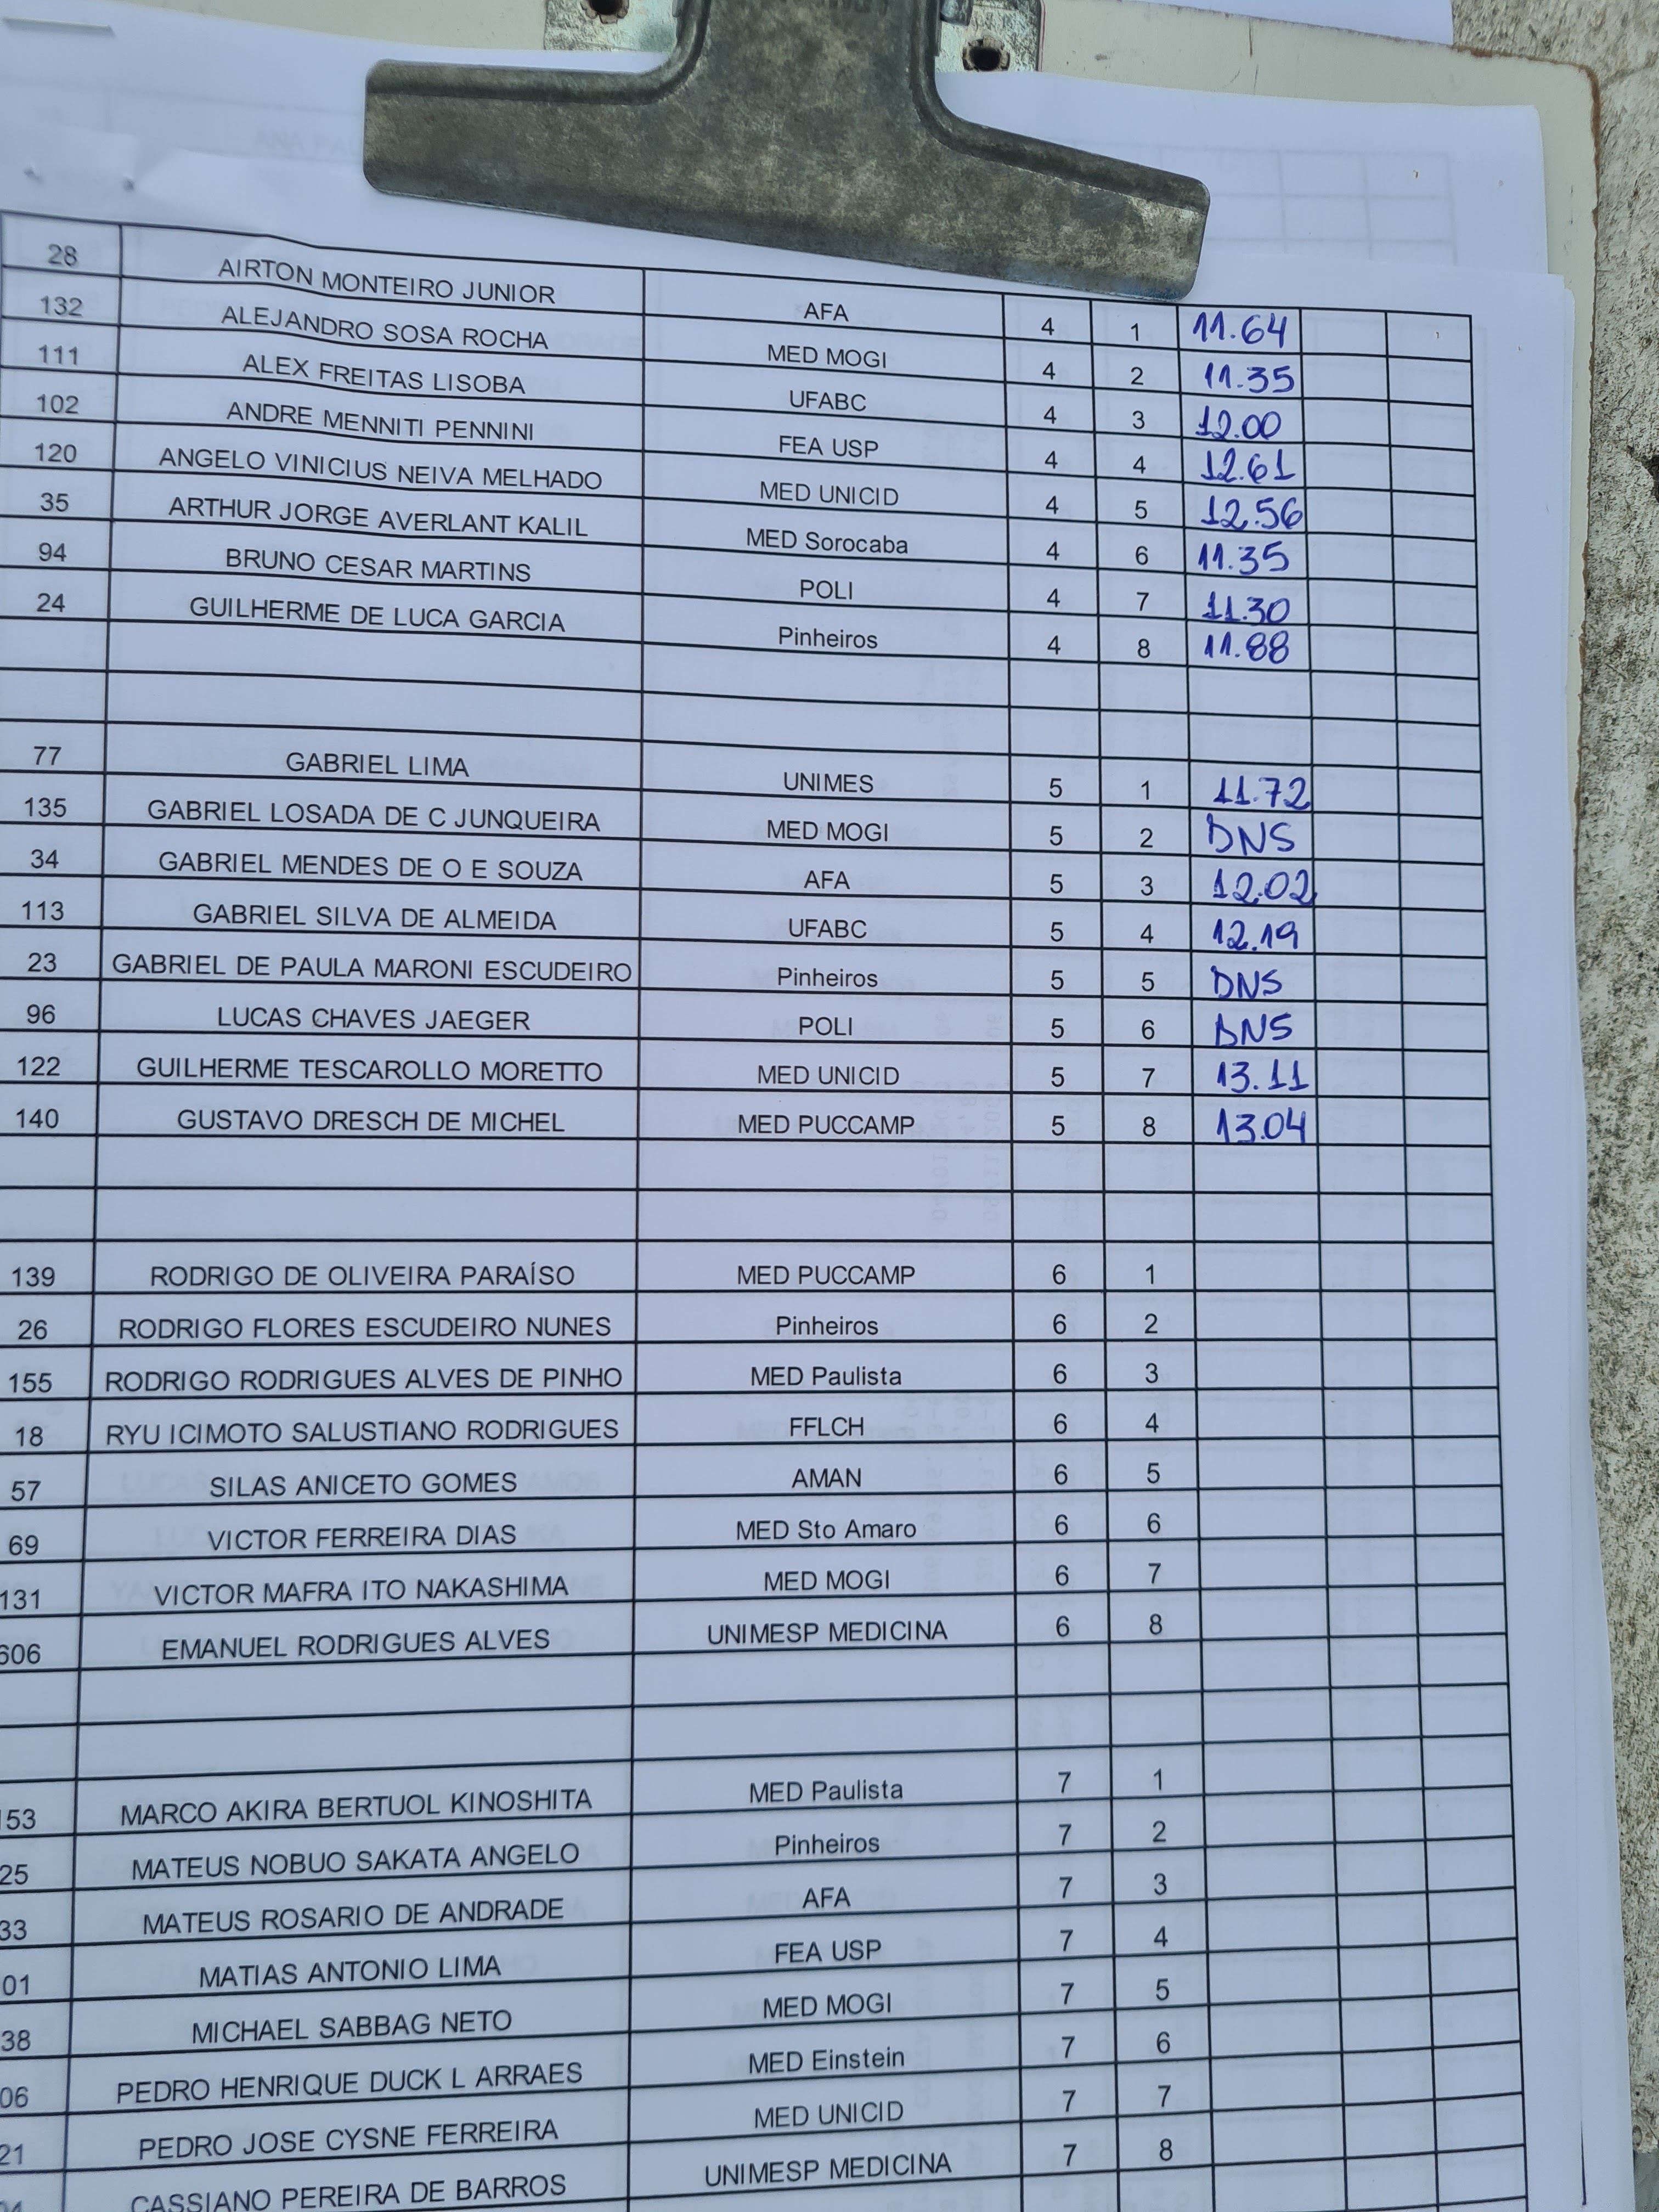 28 AIRTON MONTEIRO JUNIOR AFA 4 1 11.64
132 ALEJANDRO SOSA ROCHA MED MOGI 4 2 11.35
111 ALEX FREITAS LISOBA UFABC 4 3 12.00
102 ANDRE MENNITI PENNINI FEA USP 4 4 12.61
120 ANGELO VINICIUS NEIVA MELHADO MED UNICID 4 5 12.56
35 ARTHUR JORGE AVERLANT KALIL MED Sorocaba 4 6 11.35
94 BRUNO CESAR MARTINS POLI 4 7 11.30
24 GUILHERME DE LUCA GARCIA Pinheiros 4 8 11.88
77 GABRIEL LIMA UNIMES 5 1 11.72
135 GABRIEL LOSADA DE C JUNQUEIRA MED MOGI 5 2 DNS
34 GABRIEL MENDES DE O E SOUZA AFA 5 3 12.02
113 GABRIEL SILVA DE ALMEIDA UFABC 5 4 12.19
23 GABRIEL DE PAULA MARONI ESCUDEIRO Pinheiros 5 5 DNS
96 LUCAS CHAVES JAEGER POLI 5 6 DNS
122 GUILHERME TESCAROLLO MORETTO MED UNICID 5 7 13.11
140 GUSTAVO DRESCH DE MICHEL MED PUCCAMP 5 8 13.04
139 RODRIGO DE OLIVEIRA PARAÍSO MED PUCCAMP 6 1
26 RODRIGO FLORES ESCUDEIRO NUNES Pinheiros 6 2
155 RODRIGO RODRIGUES ALVES DE PINHO MED Paulista 6 3
18 RYU ICIMOTO SALUSTIANO RODRIGUES FFLCH 6 4
57 SILAS ANICETO GOMES AMAN 6 5
69 VICTOR FERREIRA DIAS MED Sto Amaro 6 6
131 VICTOR MAFRA ITO NAKASHIMA MED MOGI 6 7
606 EMANUEL RODRIGUES ALVES UNIMESP MEDICINA 6 8
153 MARCO AKIRA BERTUOL KINOSHITA MED Paulista 7 1
25 MATEUS NOBUO SAKATA ANGELO Pinheiros 7 2
33 MATEUS ROSARIO DE ANDRADE AFA 7 3
01 MATIAS ANTONIO LIMA FEA USP 7 4
38 MICHAEL SABBAG NETO MED MOGI 7 5
06 PEDRO HENRIQUE DUCK L ARRAES MED Einstein 7 6
21 PEDRO JOSE CYSNE FERREIRA MED UNICID 7 7
CASSIANO PEREIRA DE BARROS UNIMESP MEDICINA 7 8